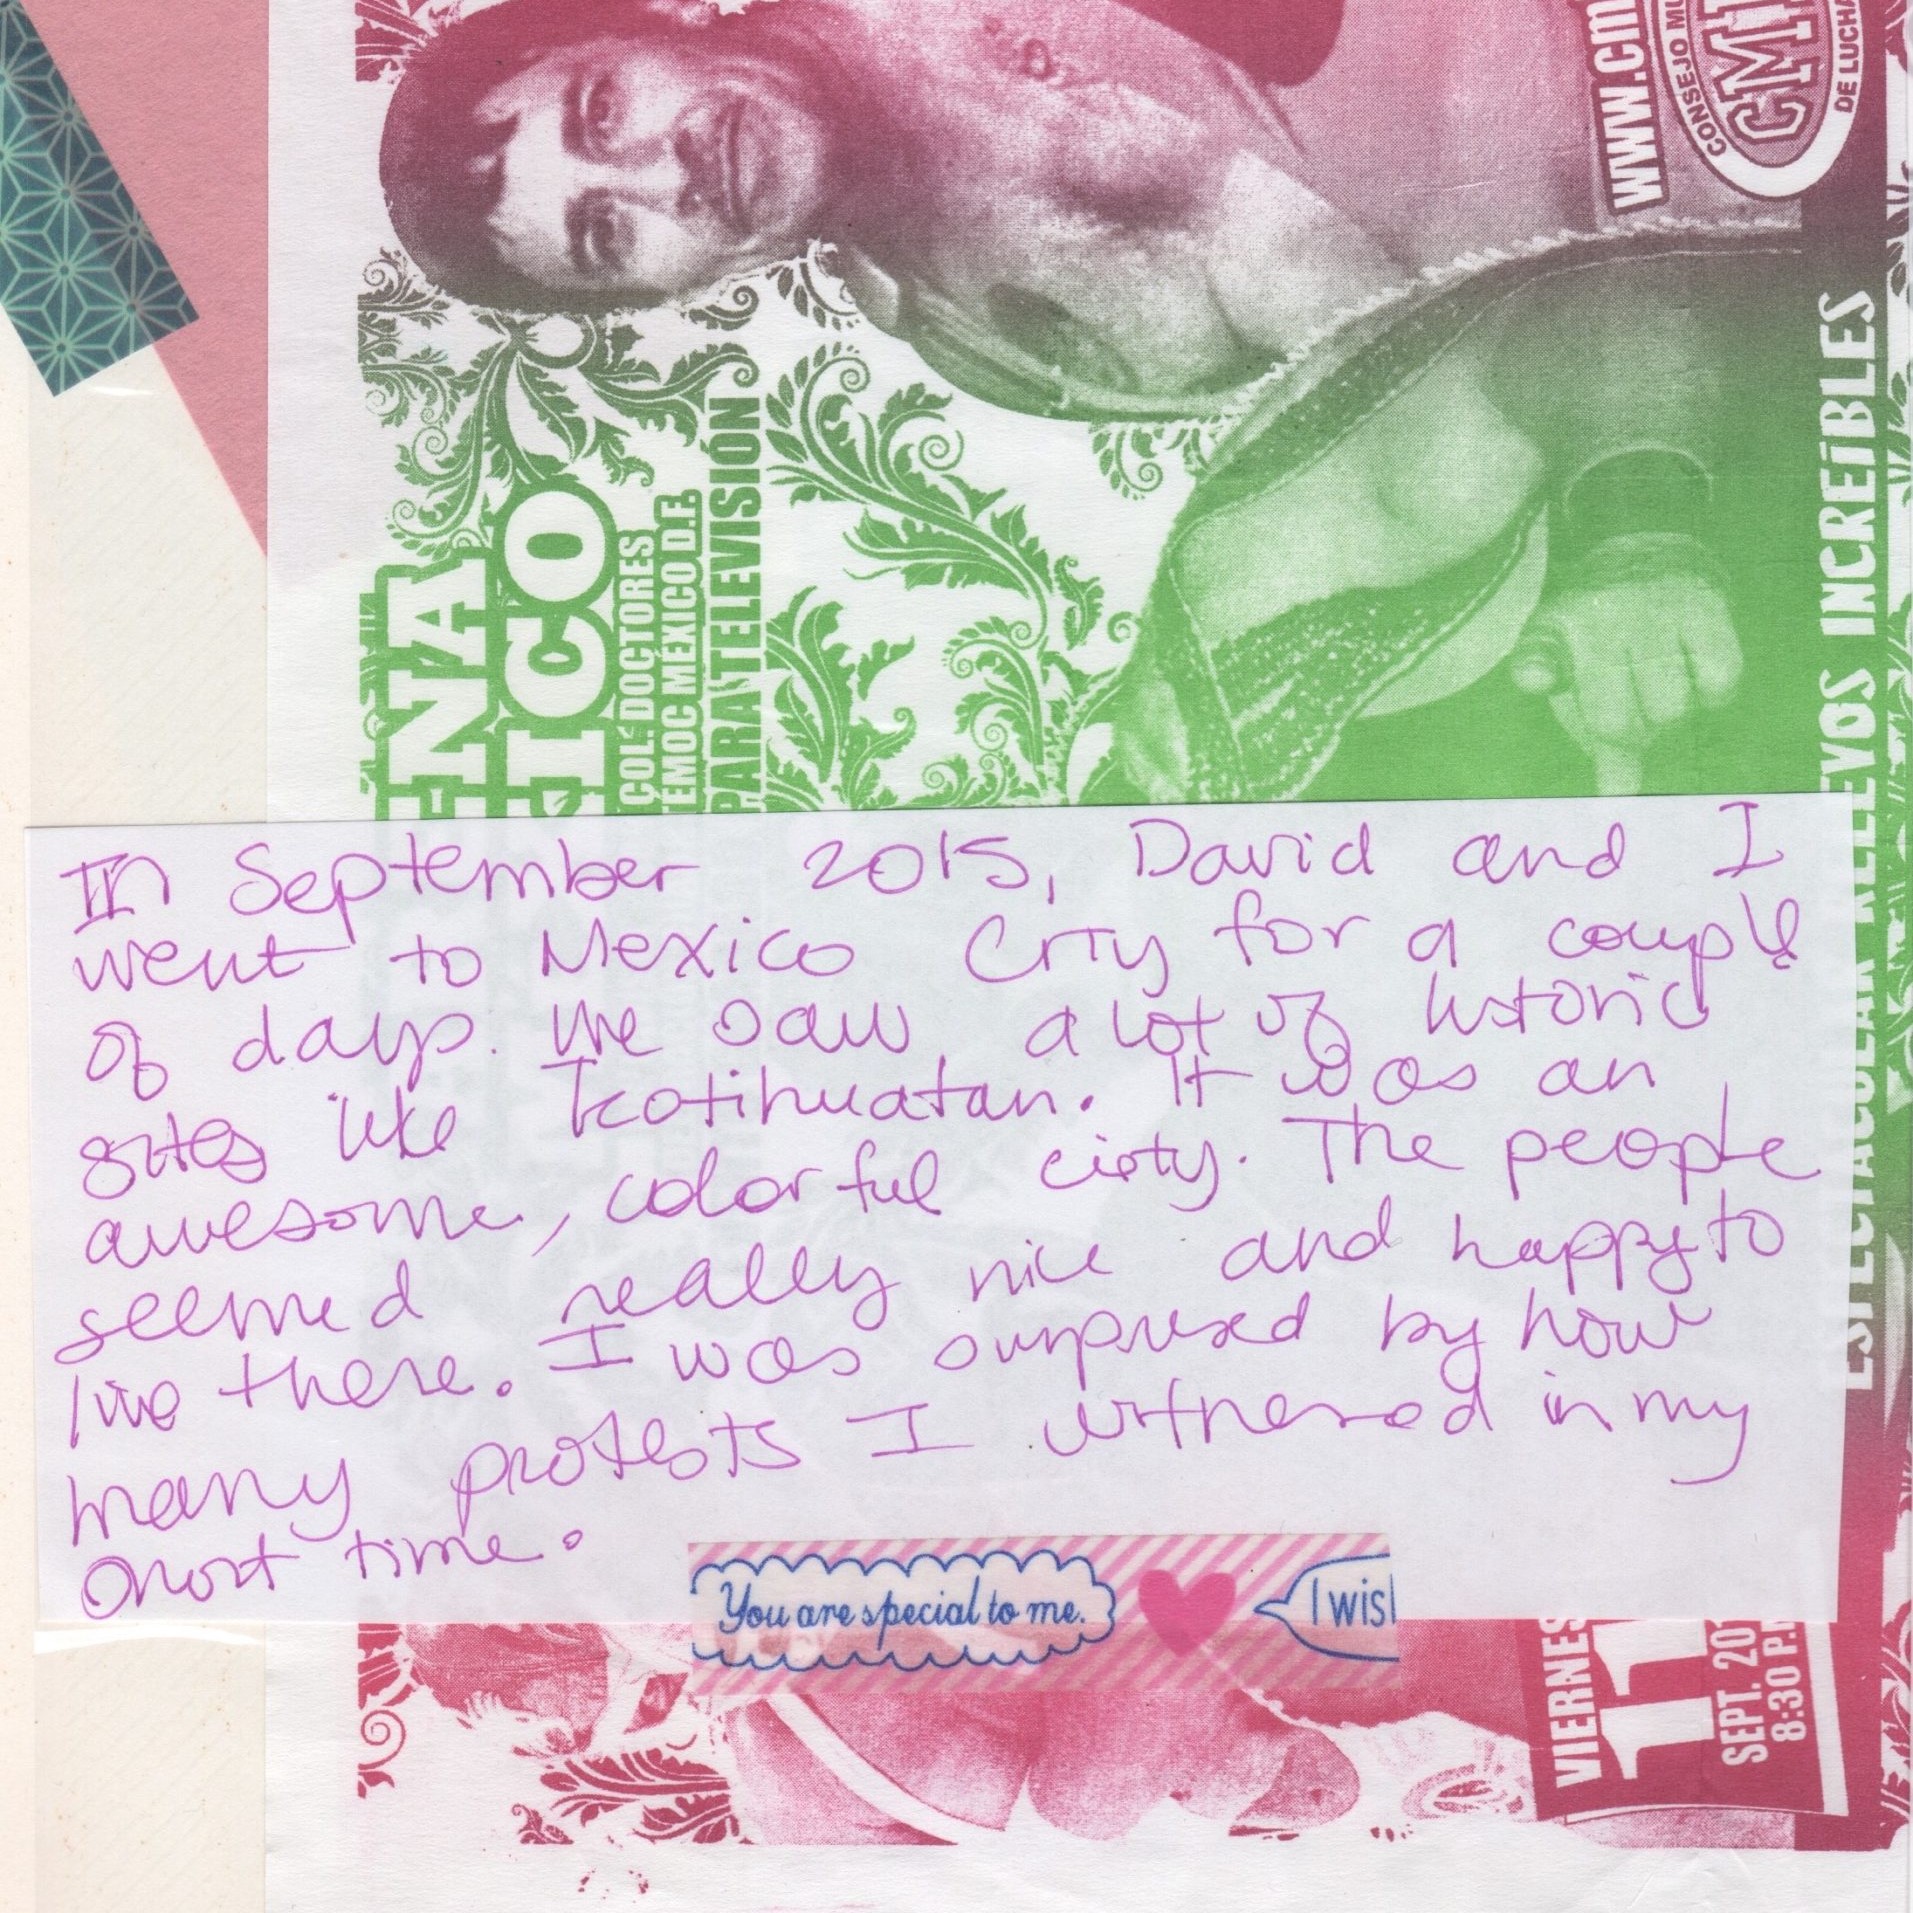 www.cm
CONSEJO MU
CML
DE LUCHA
ENA
ICO
COL. DOCTORES
TEMOC MEXICO D.F.
PARA TELEVISIÓN
ESPECTACULAR RELEVOS INCREÍBLES
In September 2015, David and I
went to Mexico City for a couple
of days. We saw a lot of historic
sites like Teotihuatan. It was an
awesome, colorful cisty. The people
seemed really nice and happy to
live there. I was surprised by how
many protests I witnessed in my
short time.
You are special to me.
I wis
VIERNES
11
SEPT. 201
8:30 P.